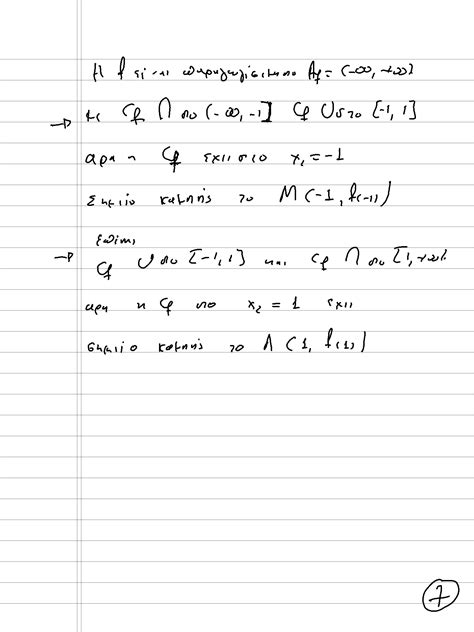 Η f είναι παραγωγίσιμη στο Af = (-∞, +∞)
→ με Cf ∩ στο (-∞, -1] Cf ∪ στο [-1, 1]
αρα η Cf εχει στο x₁ = -1
Σημείο καμπής το Μ(-1, f(-1))
Επίσης
→ Cf ∪ στο [-1, 1] και Cf ∩ στο [1, +∞)
αρα η Cf στο x₂ = 1 εχει
σημείο καμπής το Λ(1, f(1))
7